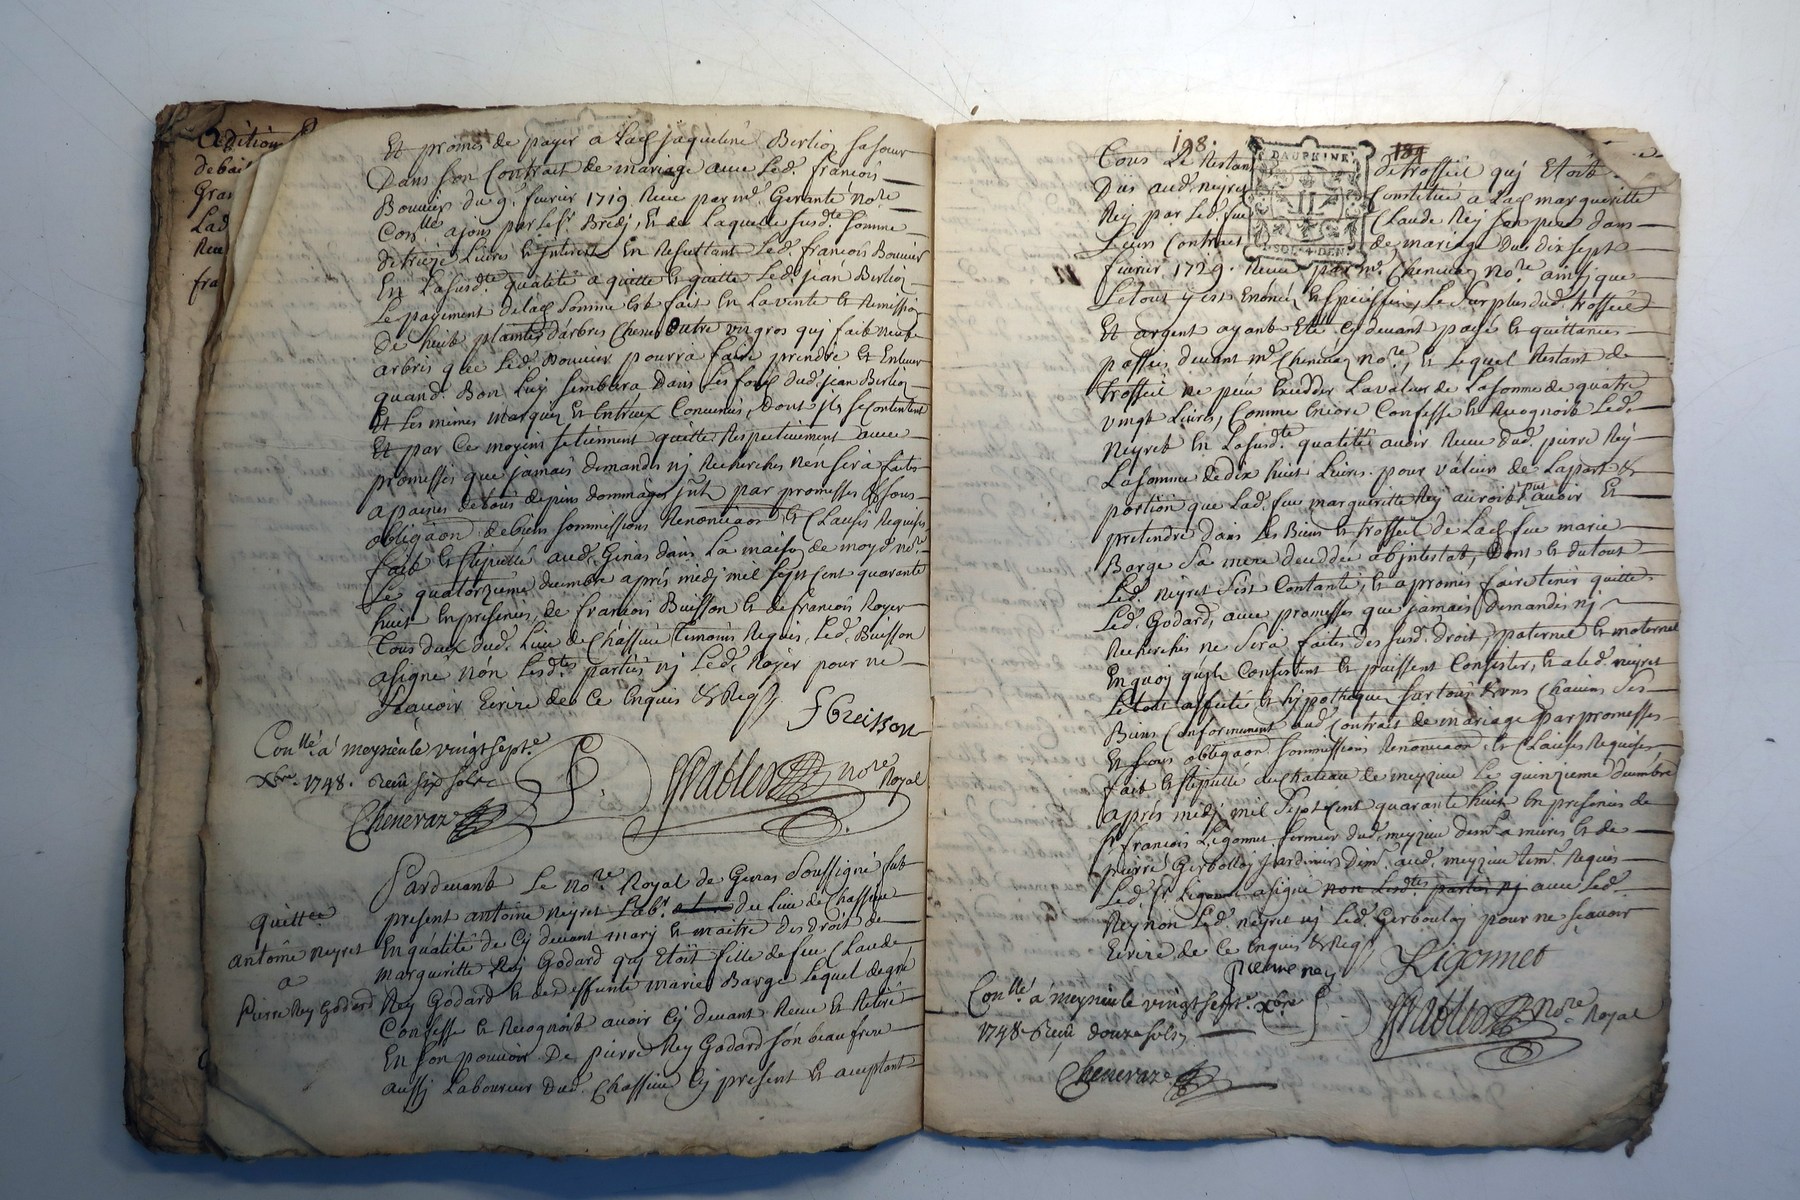 Cédition
de bai
Gra
Lad
Reu
fra
Et promis de payer a Lad. jaqueline Berlioz sa sœur
Dans son Contrait de mariage avec Led. françois
Bouvier du 9e. fevrier 1719. Receu par me. Gerante nore
Conllé a jons par le sr. Bredj, Et de Laquelle susdte. somme
de treize Livres et Interets En Resultant Led. francois Bouvier
En La susdte. qualité a quitté et quitte Led. jean Berlioz
Le payement de lad. somme Est fait En La vente et Remission
De huit plantes d'arbres Chene Outre un gros qui fait neufe
arbres que Led. Bouvier pourra faire prendre et Enlever
quand Bon Luy semblera Dans les fonds dud. jean Berlioz
Et Les mêmes marqués Et Entreux Convenus, Dont jls se Contentent
Et par Ce moyens se tiennent quitte Respectivement avec
promesses que jamais demandes nj Recherches n'en sera faites
a peines de tous depens dommages jnt. par promesses Et sous
obligãon de biens sommissions Renonciãon Et Clauses Requises
fait Et stipullé aud. Genas dans La maison de moyd. nore.
Le quatorzieme decembre après midj mil sept cent quarante
huit En presences, de francois Buisson Et de francois Royer
Tous deux dud. Lieu de Chassieu temoins Requis, Led. Buisson
a signé non Lesdtes. parties nj Led. Royer pour ne
sçavoir Ecrire de Ce Enquis Et Reqs
f Buisson
Conllé. a meyzieu le vingt sept.e
Xbre. 1748. Receu six sols
Chenevaz
nore Royal
quittce
antoine neyret
a
Pierre Rey Godard
Pardevant Le nore. Royal de Genas soussigné fut
present antoine neyret Labr. du Lieu de Chassieu
En qualité de Cy devant mary Et maitre des droit de
margueritte Rey Godard quj Etoit fille de feu Claude
Rey Godard Et de deffunte marie Barge Lequel de gré
Confesse Et Recognoit avoir Cy devant Receu et Retiré
En son pouvoir De pierre Rey Godard son beau frere
aussj Laboureur Dud. Chassieu Cy present Et acceptant
198.
184
DAUPHINÉ
II
Tous Le Restant de trosseil quj Etoit
Dus aud. neyret Constitué a Lad. marguerite
Rey par Led. feu Claude Rey son pere dans
Leurs Contrait de mariage du dix sept
fevrier 1729. Receu par me. Chenevaz nore. ainsi que
Le tout y est Enoncé, Et Speciffié, Le surplus dud. trosseil
Et argent ayant Eté Cy devant payé Et quittances
passées devant me. Chenevaz nore, Et Lequel Restant de
trosseil ne peut Exeder La valeur de La somme de quatre
vingt Livres, Comme Encore Confesse Et Recognoit Led.
Neyret En La susdte. qualité avoir Receu dud. pierre Rey
La somme de dix huit Livres pour valeur de La part Et
portion que Lad. feu marguerite Rey auroit pus avoir Et
pretendre dans Les Biens Et trosseil de Lad. feu marie
Barge Sa mere decedée abjntestat, Dont Et du tout
Led. neyret s'est Contanté, Et a promis faire tenir quitte
Led. Godard, avec promesses que jamais demandes nj
Recherches ne sera faites des susd. droit, paternel Et maternel
En quoy qu'jls Consistent Et puissent Consister, Et a led. neyret
Le tout affecté Et hypothequé sur tous Et uns Chacuns ses
Biens Conformement aud. Contrait de mariage par promesses
Et sous obligãon sommissions Renonciãon Et Clauses Requises
fait Et stipullé au Chateau de meyzieu Le quinzieme decembre
après midj mil sept cent quarante huit En presences de
sr. francois Ligonnet fermier dud. meyzieu demt. a mures Et de
pierre Gerboulloj jardiniers demt. aud. meyzieu temt. Requis
Led. sr. Ligonnet a signé non Lesdtes parties nj avec Led.
Rey non Led. neyret nj Led. Gerboulaj pour ne sçavoir
Ecrire de Ce Enquis Et Reqs
pierre rey
Ligonnet
Conllé. a meyzieu le vingt sept.e Xbre
1748. Receu douze sols
nore. Royal
Chenevaz